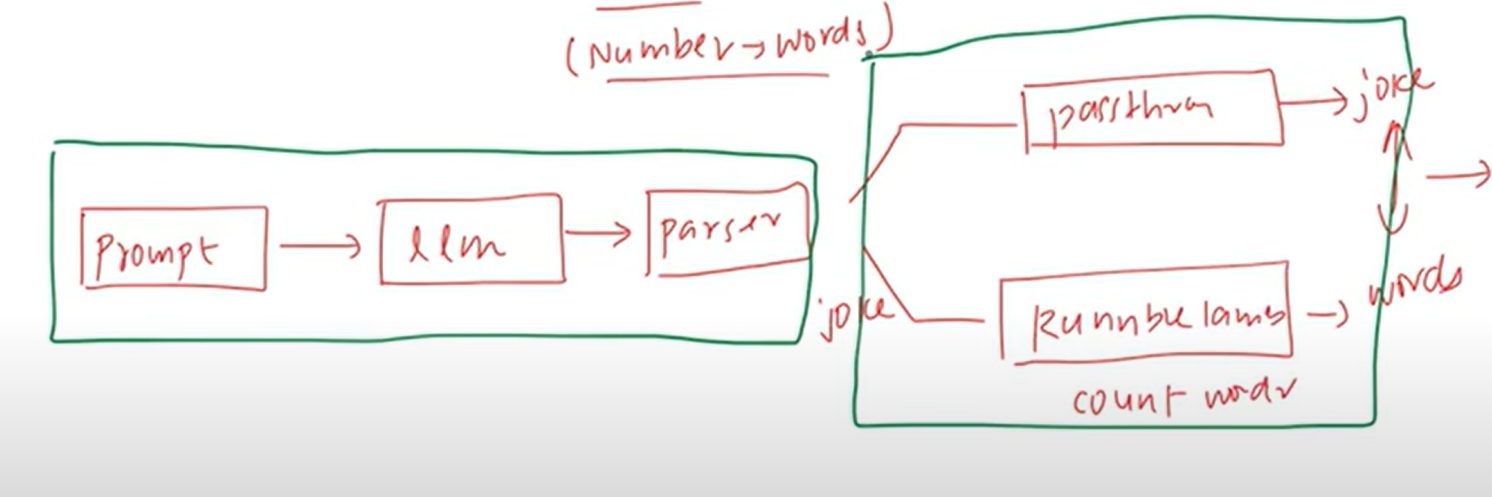 (Number → words)
Prompt → llm → parser
joke
passthru → joke
Runnble lamb → words
count words